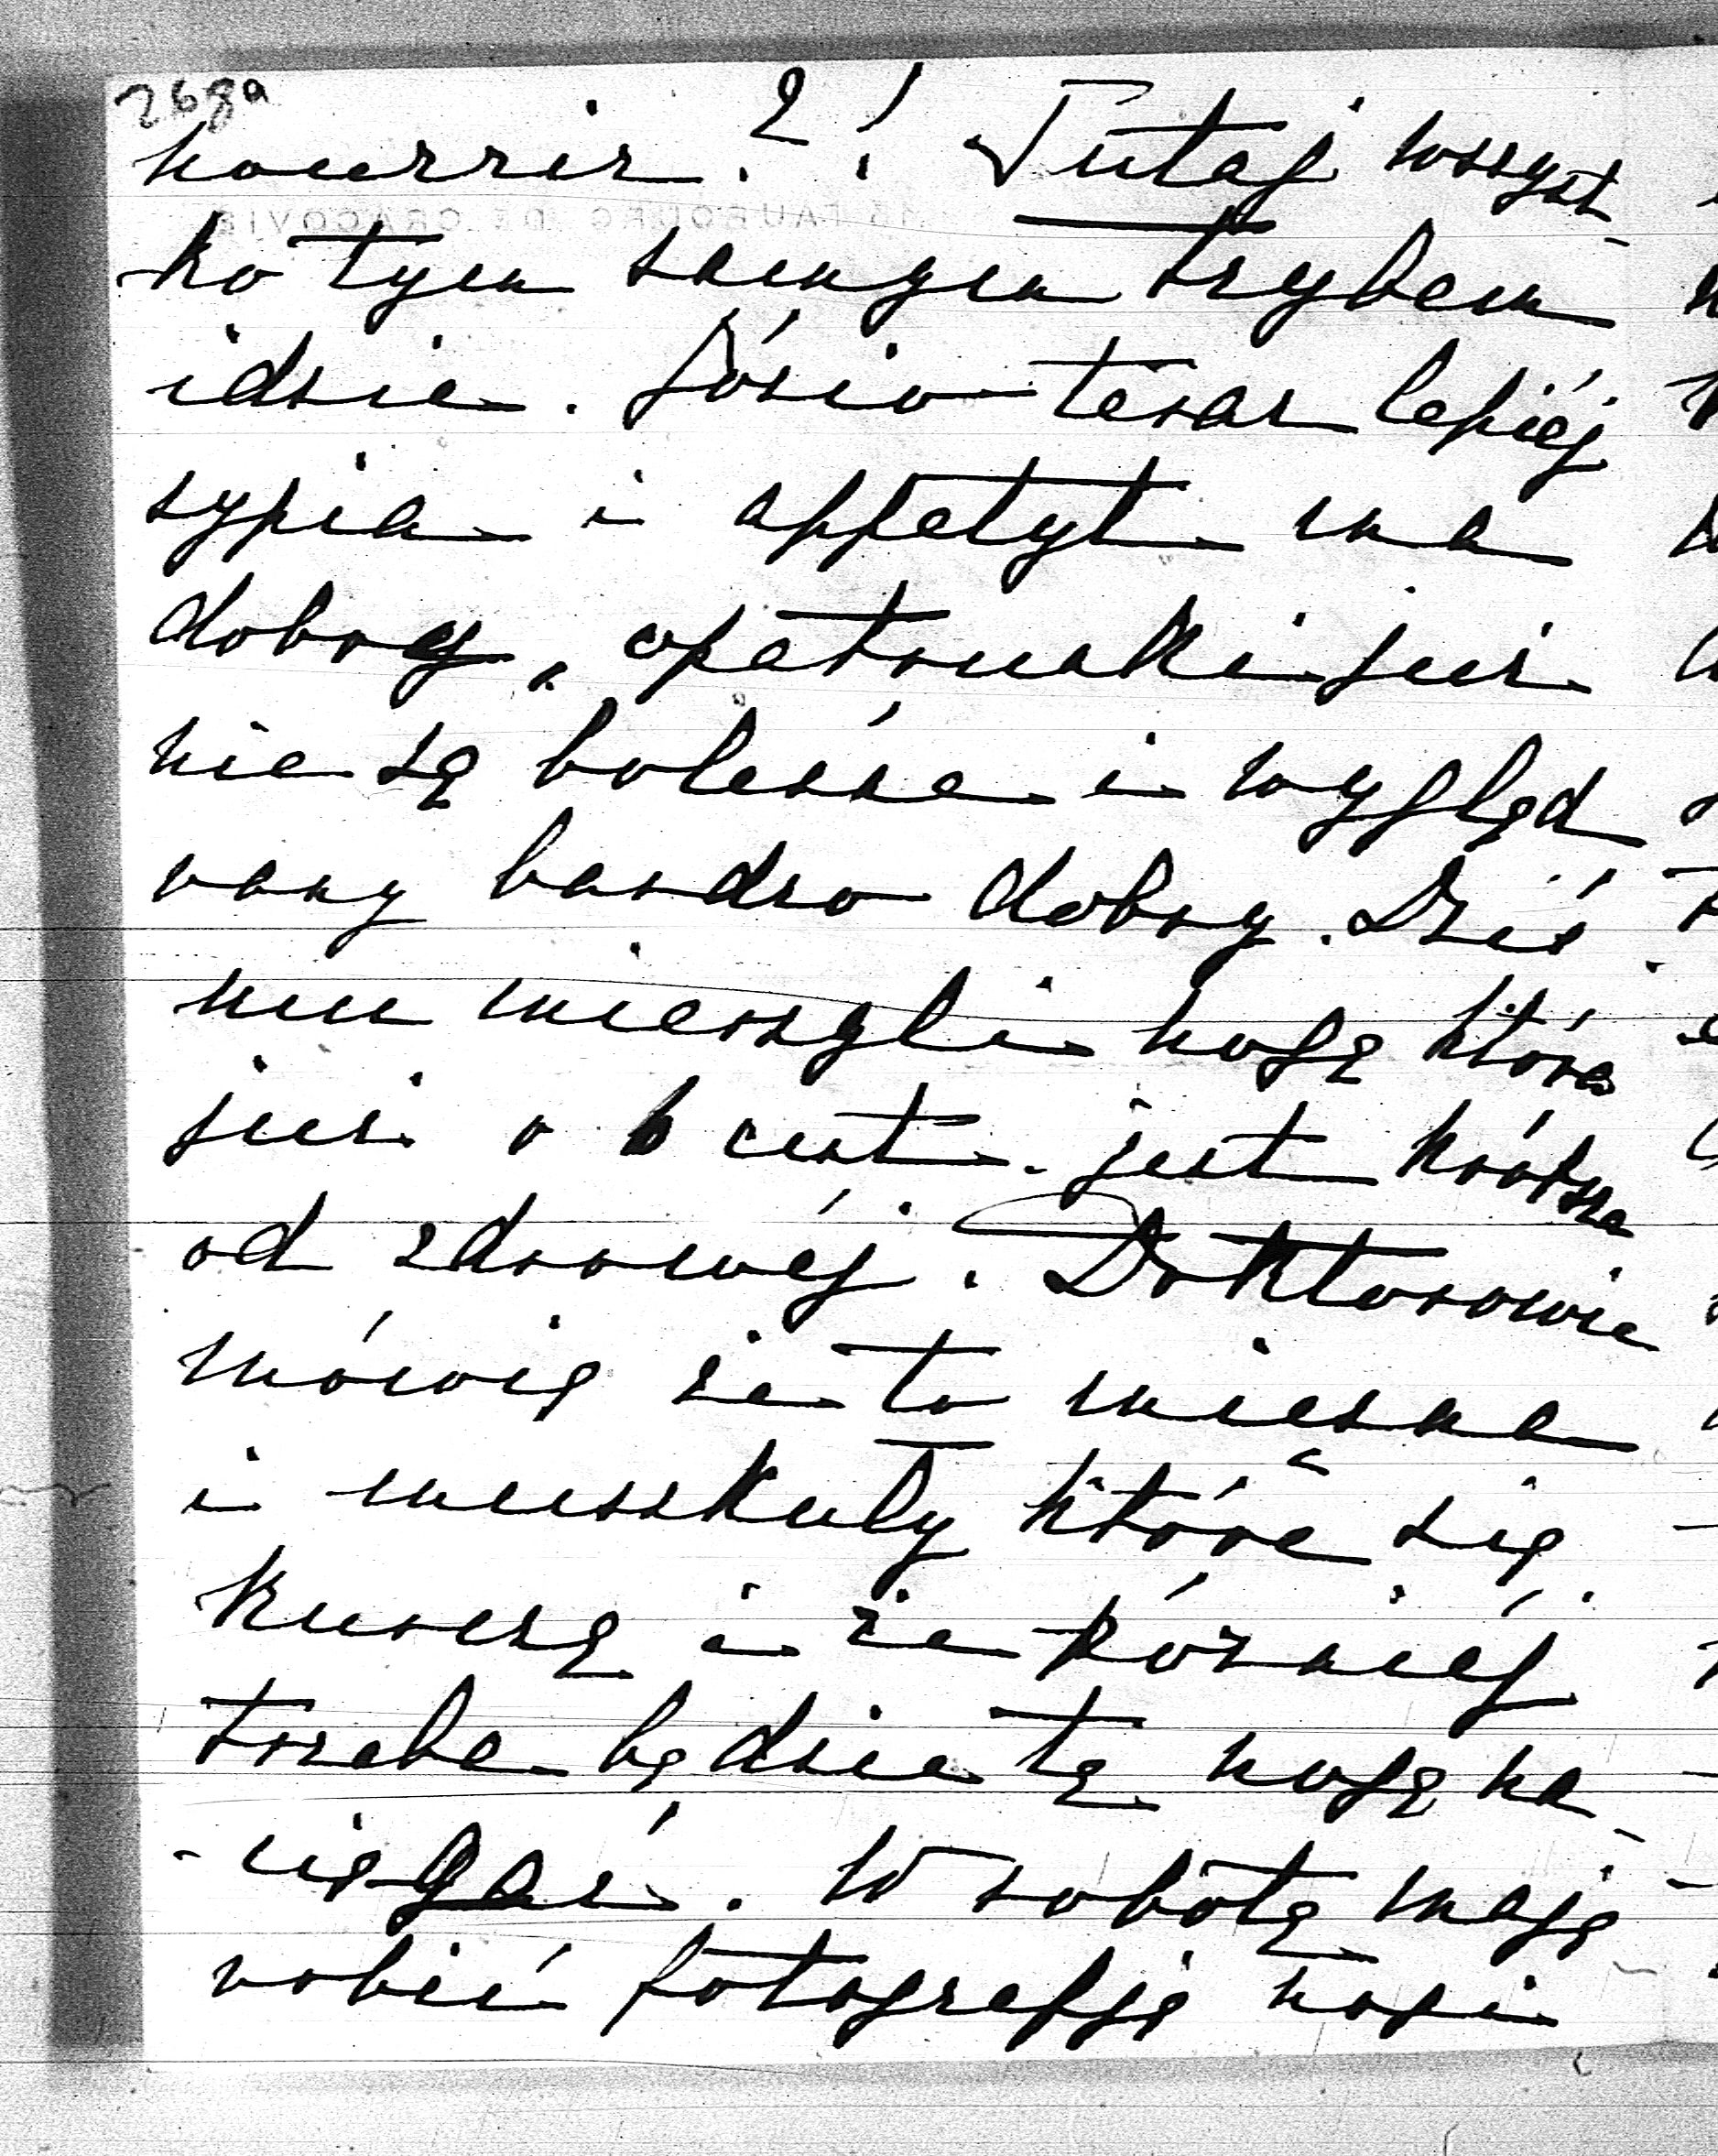 268a
nourrir ?! Tutaj wszyst-
ko tym samym trybem
idzie. Józio teraz lepiéj
sypia i appetyt ma
dobry, opatrunki już
nie są bolesne i wygląd
rany bardzo dobry. Dziś
mu mierzyli nogę która
już o 6 cent. jest krótsza
od zdrowéj. Doktorowie
mówią że to mięsna
i muszkuły które się
kurczą i że późniéj
trzeba będzie tę nogę na-
-ciągać. W sobotę mają
robić fotografję nogi
15 FAUBOURG DE CRACOVIE